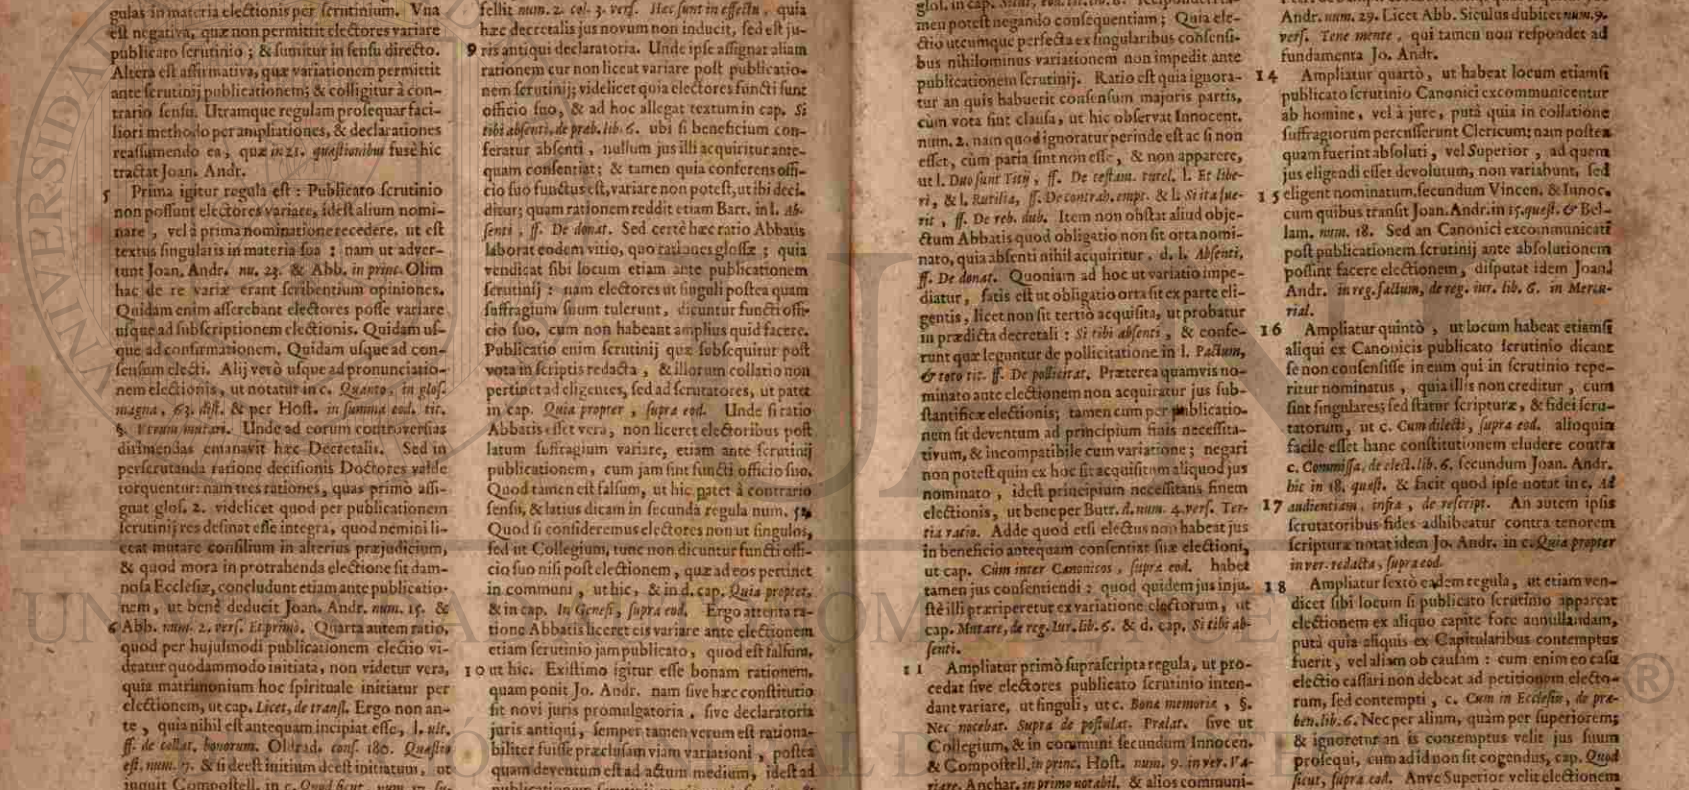 gulas in materia electionis per scrutinium. Vna
est negativa, quæ non permittit electores variare
publicato scrutinio ; & sumitur in sensu directo.
Altera est affirmativa, quæ variationem permittit
ante scrutinij publicationem; & colligitur à con-
trario sensu. Utramque regulam prosequar faci-
liori methodo per ampliationes, & declarationes
reassumendo ea, quæ in 21. quæstionibus fusè hic
tractat Joan. Andr.
5 Prima igitur regula est : Publicato scrutinio
non possunt electores variare, idest alium nomi-
nare , vel à prima nominatione recedere, ut est
textus singularis in materia sua : nam ut adver-
tunt Joan. Andr. nu. 23. & Abb. in princ. Olim
hac de re variæ erant scribentium opiniones.
Quidam enim asserebant electores posse variare
usque ad subscriptionem electionis. Quidam us-
que ad confirmationem. Quidam usque ad con-
sensum electi. Alij verò usque ad pronunciatio-
nem electionis, ut notatur in c. Quanto, in glos.
magna, 63. dist. & per Host. in summa eod. tit.
§. Verum mutari. Unde ad eorum controversias
dirimendas emanavit hæc Decretalis. Sed in
perscrutanda ratione decisionis Doctores valde
torquentur: nam tres rationes, quas primo assi-
gnat glos. 2. videlicet quod per publicationem
scrutinij res desinat esse integra, quod nemini li-
ceat mutare consilium in alterius præjudicium,
& quod mora in protrahenda electione sit dam-
nosa Ecclesiæ, concludunt etiam ante publicatio-
nem, ut benè deducit Joan. Andr. num. 15. &
6 Abb. num. 2. vers. Et primò. Quarta autem ratio,
quod per hujusmodi publicationem electio vi-
deatur quodammodo initiata, non videtur vera,
quia matrimonium hoc spirituale initiatur per
electionem, ut cap. Licet, de transl. Ergo non an-
te , quia nihil est antequam incipiat esse, l. ult.
ff. de collat. bonorum. Oldrad. cons. 180. Quæstio
est, num. 7. & si deest initium deest initiatum, ut
inquit Compostell. in c. Quod sicut, num.
sellit num. 2. col. 3. vers. Hæc sunt in effectu, quia
hæc decretalis jus novum non inducit, sed est ju-
9 ris antiqui declaratoria. Unde ipse assignat aliam
rationem cur non liceat variare post publicatio-
nem scrutinij; videlicet quia electores functi sunt
officio suo, & ad hoc allegat textum in cap. Si
tibi absenti, de præb. lib. 6. ubi si beneficium con-
feratur absenti , nullum jus illi acquiritur ante-
quam consentiat; & tamen quia conferens offi-
cio suo functus est, variare non potest, ut ibi deci-
ditur; quam rationem reddit etiam Bart. in l. Ab-
senti , ff. De donat. Sed certè hæc ratio Abbatis
laborat eodem vitio, quo rationes glossæ ; quia
vendicat sibi locum etiam ante publicationem
scrutinij : nam electores ut singuli postea quam
suffragium suum tulerunt, dicuntur functi offi-
cio suo, cum non habeant amplius quid facere.
Publicatio enim scrutinij quæ subsequitur post
vota in scriptis redacta , & illorum collatio non
pertinet ad eligentes, sed ad scrutatores, ut patet
in cap. Quia propter , supra eod. Unde si ratio
Abbatis esset vera, non liceret electoribus post
latum suffragium variare, etiam ante scrutinij
publicationem, cum jam sint functi officio suo.
Quod tamen est falsum, ut hic patet à contrario
sensu, & latius dicam in secunda regula num.
Quod si consideremus electores non ut singulos,
sed ut Collegium, tunc non dicuntur functi offi-
cio suo nisi post electionem , quæ ad eos pertinet
in communi , ut hic, & in d. cap. Quia propter,
& in cap. In Genesi, supra eod. Ergo attenta ra-
tione Abbatis liceret eis variare ante electionem
etiam scrutinio jam publicato , quod est falsum,
10 ut hic. Existimo igitur esse bonam rationem,
quam ponit Jo. Andr. nam sive hæc constitutio
sit novi juris promulgatoria , sive declaratoria
juris antiqui, semper tamen verum est rationa-
biliter fuisse præclusam viam variationi , postea
quam deventum est ad actum medium, idest ad
glos. in cap.
meu potest negando consequentiam ; Quia ele-
ctio utcumque perfecta ex singularibus consensi-
bus nihilominus variationem non impedit ante
publicationem scrutinij. Ratio est quia ignora-
tur an quis habuerit consensum majoris partis,
cùm vota sint clausa, ut hic observat Innocent.
num. 2. nam quod ignoratur perinde est ac si non
esset, cùm paria sint non esse , & non apparere,
ut l. Duo sunt Titij , ff. De testam. tutel. l. Et libe-
ri, & l. Rutilia, ff. De contrab. empt. & l. Si ita fue-
rit , ff. De reb. dub. Item non obstat aliud obje-
ctum Abbatis quod obligatio non sit orta nomi-
nato, quia absenti nihil acquiritur , d. l. Absenti,
ff. De donat. Quoniam ad hoc ut variatio impe-
diatur, satis est ut obligatio orta sit ex parte eli-
gentis, licet non sit tertiò acquisita, ut probatur
in prædicta decretali : Si tibi absenti , & confe-
runt quæ leguntur de pollicitatione in l. Pactum,
& toto tit. ff. De pollicitat. Præterea quamvis no-
minato ante electionem non acquiratur jus sub-
stantificæ electionis; tamen cum per publicatio-
nem sit deventum ad principium finis necessita-
tivum, & incompatibile cum variatione ; negari
non potest quin ex hoc sit acquisitum aliquod jus
nominato , idest principium necessitans finem
electionis, ut bene per Butr. d. num. 4. vers. Ter-
tia ratio. Adde quod etsi electus non habeat jus
in beneficio antequam consentiat suæ electioni,
ut cap. Cùm inter Canonicos , supra eod. habet
tamen jus consentiendi : quod quidem jus inju-
stè illi præriperetur ex variatione electorum, ut
cap. Mutare, de reg. Iur. lib. 6. & d. cap. Si tibi ab-
senti.
11 Ampliatur primò suprascripta regula, ut pro-
cedat sive electores publicato scrutinio inten-
dant variare, ut singuli, ut c. Bonæ memoriæ , §.
Nec nocebat. Supra de postulat. Prælat. sive ut
Collegium, & in communi secundum Innocen.
& Compostell. in princ. Host. num. 9. in ver. Va-
riare. Anchar. in primo notabil. & alios communi-
Andr. num. 29. Licet Abb. Siculus dubitet num. 9.
vers. Tene mente , qui tamen non respondet ad
fundamenta Jo. Andr.
14 Ampliatur quartò, ut habeat locum etiamsi
publicato scrutinio Canonici excommunicentur
ab homine, vel à jure, putà quia in collatione
suffragiorum percusserunt Clericum; nam postea
quam fuerint absoluti , vel Superior , ad quem
jus eligendi esset devolutum, non variabunt, sed
15 eligent nominatum, secundum Vincen. & Innoc.
cum quibus transit Joan. Andr. in 15. quæst. & Bel-
lam. num. 18. Sed an Canonici excommunicati
post publicationem scrutinij ante absolutionem
possint facere electionem, disputat idem Joan.
Andr. in reg. factum, de reg. iur. lib. 6. in Mercu-
rial.
16 Ampliatur quintò , ut locum habeat etiamsi
aliqui ex Canonicis publicato scrutinio dicant
se non consensisse in eum qui in scrutinio repe-
ritur nominatus , quia illis non creditur , cum
sint singulares; sed statur scripturæ, & fidei scru-
tatorum, ut c. Cum dilecti, supra eod. alioquin
facile esset hanc constitutionem eludere contra
c. Commissa, de elect. lib. 6. secundum Joan. Andr.
hic in 18. quæst. & facit quod ipse notat in c. Ad
17 audientiam, infra , de rescript. An autem ipsis
scrutatoribus fides adhibeatur contra tenorem
scripturæ notat idem Jo. Andr. in c. Quia propter
in ver. redacta, supra eod.
18 Ampliatur sextò eadem regula, ut etiam ven-
dicet sibi locum si publicato scrutinio appareat
electionem ex aliquo capite fore annullandam,
putà quia aliquis ex Capitularibus contemptus
fuerit , vel aliam ob causam : cum enim eo casu
electio cassari non debeat ad petitionem electo-
rum, sed contempti , c. Cum in Ecclesiis, de præ-
ben. lib. 6. Nec per alium, quàm per superiorem;
& ignoretur an is contemptus velit jus suum
prosequi, cum ad id non sit cogendus, cap. Quod
sicut, supra eod. Anve Superior velit electionem